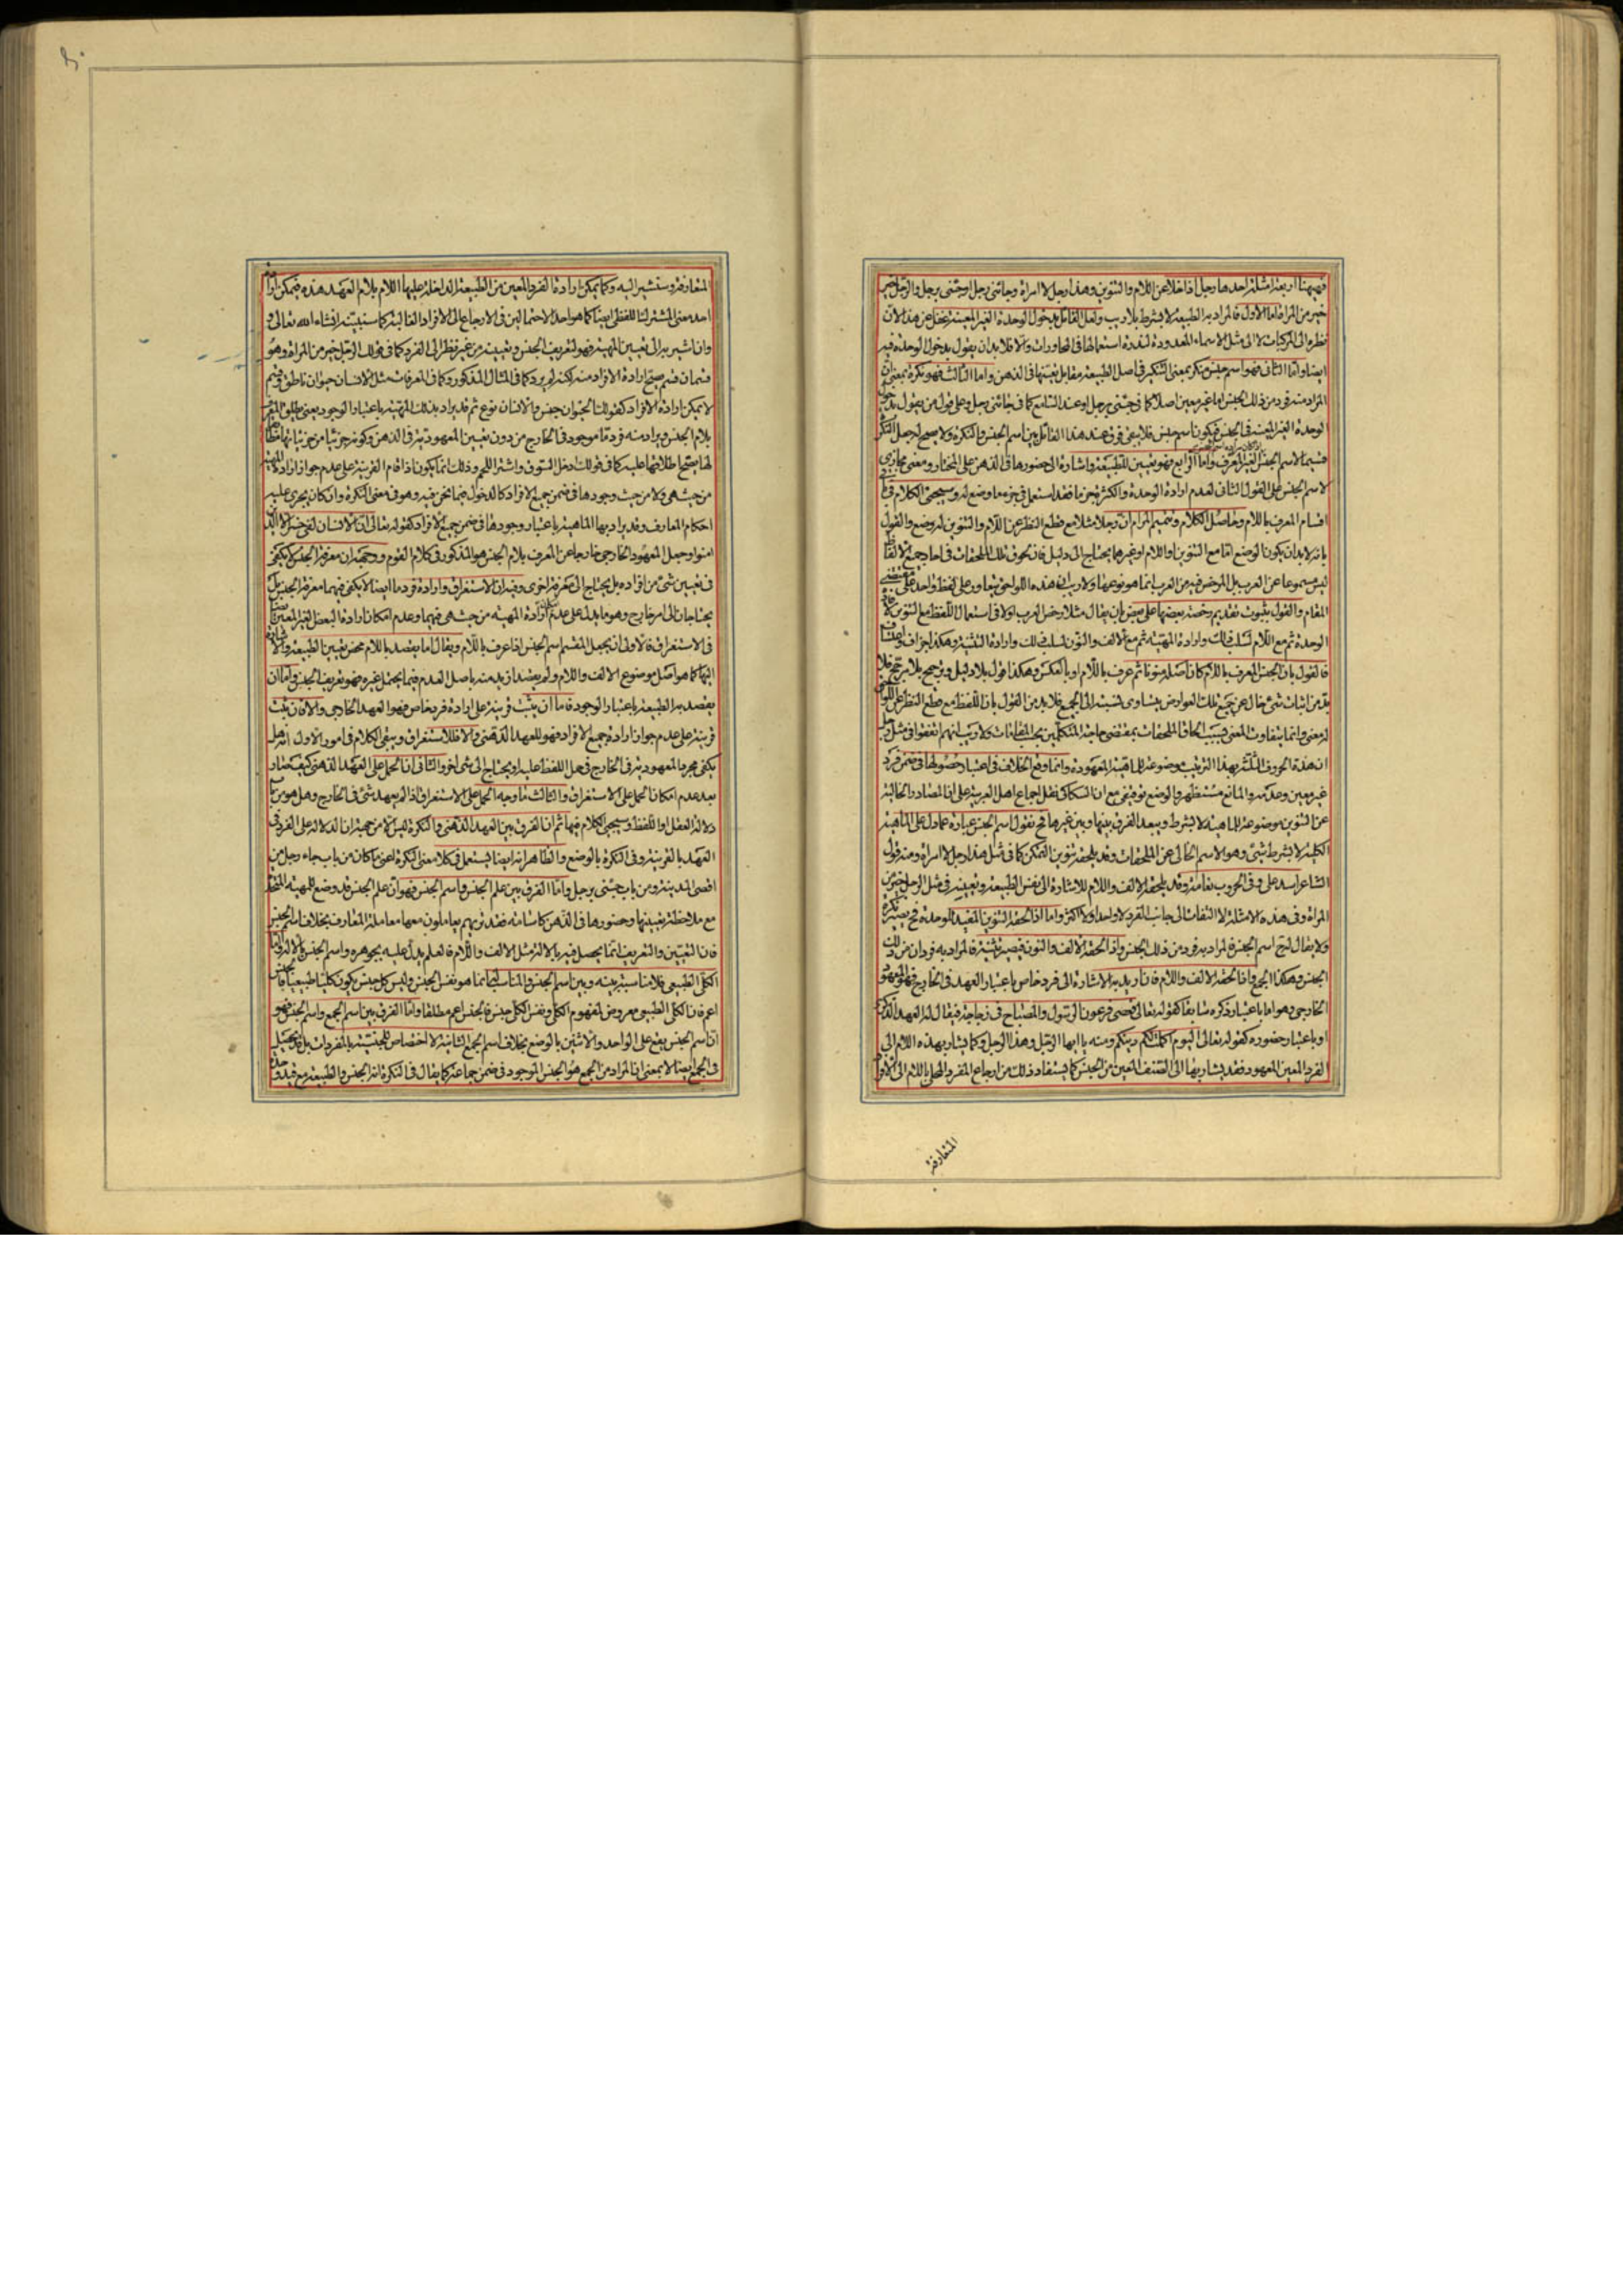 فههنا اربعة امثلة احدها رجل اذا خلا عن اللام والتنوين وهذا رجل لا امراة وجائني رجل او جئني برجل والرجل خير
خير من المراة اما الاول فالمراد به الطبيعة لا بشرط بلا ريب ولعل القائل بدخول الوحدة الغير المعينة غفل عن هذا لان
نظره الى المركبات لا الى مثل الاسماء المعدودة لندرة استعمالها في المحاورات والا فلا بد ان يقول بدخول الوحدة فيه
ايضا واما الثاني فهو اسم جنس منكر بمعنى التنكير في اصل الطبيعة مقابل تعينها في الذهن واما الثالث فهو نكرة بمعنى ان
المراد منه فرد من ذلك الجنس اما غير معين اصلا كما في جئني برجل او عند السامع كما في جائني رجل وعلى قول من يقول بدخول
الوحدة الغير المعينة في الجنس فيكون اسم جنس فلا يبقى فرق عند هذا القائل بين اسم الجنس والنكرة ولا يصح له جعل النكرة
قسيما لاسم الجنس الغير المعرف واما الرابع فهو تعيين للطبيعة واشارة الى حضورها في الذهن على المختار ومعنى مجازي
لاسم الجنس على القول الثاني لعدم ارادة الوحدة والكثرة بجزء ما فقد استعمل في جزء ما وضع له وسيجيئ الكلام في
اقسام المعرف باللام وحاصل الكلام وتتميم المرام ان رجلا مثلا مع قطع النظر عن اللام والتنوين له وضع والقول
بانه لا بد ان يكون الوضع اما مع التنوين او اللام او غيرهما يحتاج الى دليل فان لحوق تلك الملحقات في احاد جميع الالفاظ
ليس مسموعا عن العرب بل المرخص فيه من العرب انما هو نوعها ولا ريب ان هذه اللواحق يتعاور على لفظ واحد على مقتضى
المقام والقول بثبوت تقديم رخصة بعضها على بعض بان يقال مثلا رخص العرب اولا في استعمال اللفظ مع التنوين لافادة
الوحدة ثم مع اللام لسلب ذلك وارادة المهية ثم مع الالف والنون لسلب ذلك وارادة التثنية وهكذا جزاف واعتساف
فالقول بان الجنس المعرف باللام كان اصله منونا ثم عرف باللام او بالعكس وهكذا قول بلا دليل وترجيح بلا مرجح فلا
بد من اثبات شئ خال عن جميع تلك العوارض يتساوى نسبته الى الجميع فلا بد من القول بان للفظ مع قطع النظر عن اللواحق
له معنى وانما يتفاوت المعنى بسبب الحاق الملحقات بمقتضى حاجة المتكلمين بحسب المقامات ولا ريب انهم اتفقوا في مثل رجل
ان هذه الحروف الثلثة بهذا الترتيب موضوعة للماهية المعهودة وانما وقع الخلاف في اعتبار حصولها في ضمن فرد
غير معين وعدمه والمانع مستظهر والوضع توقيفي مع ان السكاكي نقل اجماع اهل العربية على ان المصادر الخالية
عن التنوين موضوعة للماهية لا بشرط ويبعد الفرق بينها وبين غيرها فح نقول اسم الجنس عبارة عما دل على الماهية
الكلية لا بشرط شئ وهو الاسم الخالي عن الملحقات وقد يلحقه تنوين التمكن كما في مثل هذا رجل لا امراة ومنه قول
الشاعر اسد علي وفي الحروب نعامة وقد يلحقه الالف واللام للاشارة الى نفس الطبيعة وتعيينه في مثل الرجل خير من
المراة وفي هذه الامثلة لا التفات الى جانب الفرد لا واحدا ولا اكثر واما اذا لحقه التنوين المفيد للوحدة فح يصير نكرة
ولا يقال له ح اسم الجنس فالمراد به فرد من ذلك الجنس واذا لحقه الالف والنون فيصير تثنية فالمراد به فردان من ذلك
الجنس وهكذا الجمع واذا لحقه الالف واللام فان اريد به الاشارة الى فرد خاص باعتبار العهد في الخارج فهو المعهود
الخارجي وهو اما باعتبار ذكره سابقا كقوله تعالى فعصى فرعون الرسول والمصباح في زجاجة فيقال له العهد الذكري
او باعتبار حضوره كقوله تعالى اليوم اكملت لكم دينكم ومنه يا ايها الرجل وهذا الرجل وكما يشار بهذه اللام الى
الفرد المعين المعهود فقد يشار بها الى الصنف المعين من الجنس كما يستفاد ذلك من ارجاع المفرد المحلى باللام الى الافراد
المتعارفة
المتعارفة وسنشير اليه وكما يمكن ارادة الفرد المعين من الطبيعة الداخلة عليها اللام بلام العهد هذه فيمكن ارادة
احد معنيي المشترك اللفظي ايضا كما هو احد الاحتمالين في الارجاع الى الافراد الغالبة كما سنبينه انشاء الله تعالى و
وان اشير به الى تعيين المهية فهو لتعريف الجنس وتعيينه من غير نظر الى الفرد كما في قولك الرجل خير من المراة وهو
قسمان قسم يصح ارادة الافراد منه لكنه لم يرد كما في المثال المذكور وكما في المعرفات مثل الانسان حيوان ناطق وقسم
لا يمكن ارادة الافراد كقولك الحيوان جنس والانسان نوع ثم قد يراد بذلك المهية باعتبار الوجود يعني يطلق المعرف
بلام الجنس ويراد منه فرد ما موجود في الخارج من دون تعيين المعهودية في الذهن وكونه جزئيا من جزئياتها مطابقا
لها يصح اطلاقها عليه كما في قولك ادخل السوق واشتر اللحم وذلك انما يكون اذا قام القرينة على عدم جواز ارادة المهية
من حيث هي ولا من حيث وجودها في ضمن جميع الافراد كالدخول فيما نحن فيه وهو في معنى النكرة وان كان يجري عليه
احكام المعارف وقد يراد بها الماهية باعتبار وجودها في ضمن جميع الافراد كقوله تعالى ان الانسان لفي خسر الا الذين
امنوا وجعل المعهود الخارجي خارجا عن المعرف بلام الجنس هو المذكور في كلام القوم ووجهه ان معرفة الجنس لا يكفي
في تعيين شئ من افراده بل يحتاج الى معرفة اخرى وفيه ان الاستغراق وارادة فرد ما ايضا لا يكفي فيهما معرفة الجنس بل
يحتاجان الى امر خارج وهو ما يدل على عدم ارادة المهية من حيث هي فيهما وعدم امكان ارادة البعض الغير المعين ايضا
في الاستغراق فالاولى ان يجعل المقسم اسم الجنس اذا عرف باللام ويقال اما يقصد باللام محض تعيين الطبيعة والاشارة
اليها كما هو اصل موضوع الالف واللام ولم يقصد ازيد منه باصل العدم فيما يحتمل غيره فهو تعريف الجنس واما ان
يقصد به الطبيعة باعتبار الوجود فاما ان يثبت قرينة على ارادة فرد خاص فهو العهد الخارجي والا فان يثبت
قرينة على عدم جواز ارادة جميع الافراد فهو للعهد الذهني والا فللاستغراق ويبقى الكلام في امور الاول انه هل
يكفي مجرد المعهودية في الخارج في حمل اللفظ عليه او يحتاج الى شئ اخر والثاني ان الحمل على العهد الذهني كيف صار
بعد عدم امكان الحمل على الاستغراق والثالث ما وجه الحمل على الاستغراق اذا لم يعهد شئ في الخارج وهل هو من باب
دلالة العقل او اللفظ وسيجيئ الكلام فيها ثم ان الفرق بين العهد الذهني والنكرة ليس الا من جهة ان الدلالة على الفرد في
العهد بالقرينة وفي النكرة بالوضع والظاهر انه ايضا يستعمل في كلا معنيي النكرة اعني ما كان من باب جاء رجل من
اقصى المدينة ومن باب جئني برجل واما الفرق بين علم الجنس واسم الجنس فهو ان علم الجنس قد وضع للمهية المتحدة
مع ملاحظة تعيينها وحضورها في الذهن كاسامة فقد تريهم يعاملون معها معاملة المعارف بخلاف اسم الجنس
فان التعيين والتعريف انما يحصل فيه بالالة مثل الالف واللام فالعلم يدل عليه بجوهره واسم الجنس بالالة واما
الكلي الطبيعي فلا مناسبة بينه وبين اسم الجنس والمناسب له انما هو نفس الجنس وليس كل جنس يكون كليا طبيعيا فالجنس
اعم فان الكلي الطبيعي معروض لمفهوم الكلي ونفس الكلي جنس فالجنس اعم مطلقا واما الفرق بين اسم الجمع واسم الجنس فهو
ان اسم الجنس يقع على الواحد والاثنين بالوضع بخلاف اسم الجمع الثانية لا اختصاص للجنسية بالمفردات بل قد يحصل
في الجمع ايضا لا بمعنى ان المراد من الجمع هو الجنس الموجود في ضمن جماعة كما يقال في النكرة انه الجنس والطبيعة مع قيد وحدة